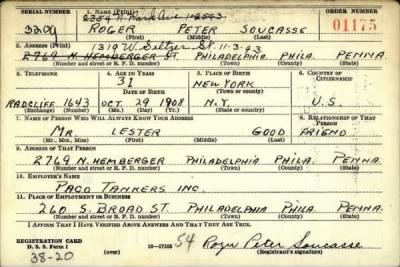 SERIAL NUMBER 1. NAME (Print) ORDER NUMBER
2354 N. Park Ave
3209 ROGER PETER SOUCASSE 01175
(First) (Middle) (Last)
2. ADDRESS (Print) 1319 W. Seltzer St. 11-3-43
2769 N. HEMBERGER ST. PHILADELPHIA PHILA. PENNA.
(Number and street or R. F. D. number) (Town) (County) (State)
3. TELEPHONE 4. AGE IN YEARS 5. PLACE OF BIRTH 6. COUNTRY OF CITIZENSHIP
31 NEW YORK
(Town or county)
DATE OF BIRTH
RADCLIFF 1643 OCT. 29 1908 N.Y. U.S.
(Exchange) (Number) (Mo.) (Day) (Yr.) (State or country)
7. NAME OF PERSON WHO WILL ALWAYS KNOW YOUR ADDRESS 8. RELATIONSHIP OF THAT PERSON
MR. LESTER GOOD FRIEND
(Mr., Mrs., Miss) (First) (Middle) (Last)
9. ADDRESS OF THAT PERSON
2769 N. HEMBERGER PHILADELPHIA PHILA. PENNA.
(Number and street or R. F. D. number) (Town) (County) (State)
10. EMPLOYER'S NAME
PACO TANKERS INC.
11. PLACE OF EMPLOYMENT OR BUSINESS
260 S. BROAD ST. PHILADELPHIA PHILA. PENNA.
(Number and street or R. F. D. number) (Town) (County) (State)
I AFFIRM THAT I HAVE VERIFIED ABOVE ANSWERS AND THAT THEY ARE TRUE.
REGISTRATION CARD
D. S. S. Form 1 16-17105 54 Roger Peter Soucasse
38-20 (Registrant's signature)